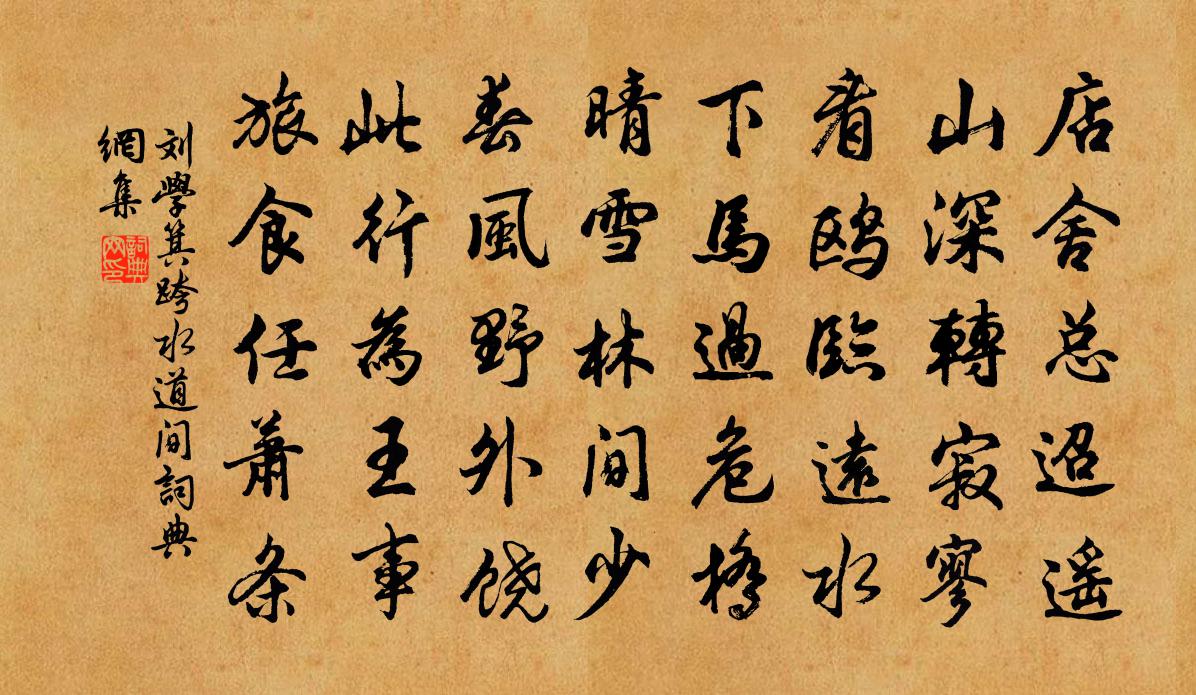 店舍总迢遥
山深轉寂寥
看鸥臨遠水
下馬過危橋
晴雪林间少
春風野外饶
此行為王事
旅食任萧条
刘學箕跨水道间詞典
網集
詞典网印